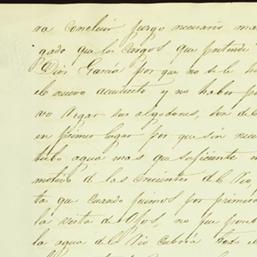 va concluir juzgo necesario ma
gado que los cargos que pretende
Dios Garcia por que no se le h
el nuevo acueducto y no haber po
regar los algodones, era de
en primer lugar por que sin nece
tubo agua mas que suficiente
motivo de las crecientes del Rio,
ta que cuando fuimos por primera
la vista de ojos, no que pued
la agua del Rio todo el